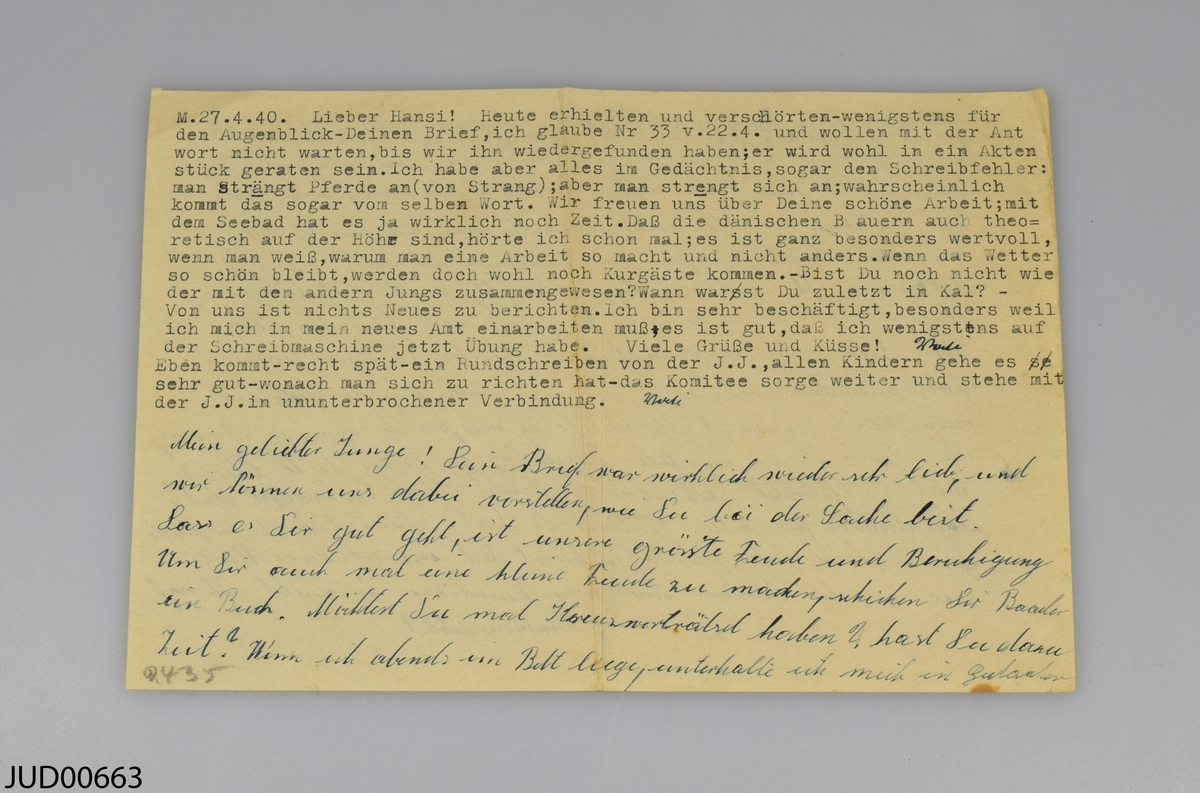 M.27.4.40.  Lieber Hansi!  Heute erhielten und verschlörten-wenigstens für
den Augenblick-Deinen Brief,ich glaube Nr 33 v.22.4. und wollen mit der Ant
wort nicht warten,bis wir ihn wiedergefunden haben;er wird wohl in ein Akten
stück geraten sein.Ich habe aber alles im Gedächtnis,sogar den Schreibfehler:
man strängt Pferde an(von Strang);aber man strengt sich an;wahrscheinlich
kommt das sogar vom selben Wort. Wir freuen uns über Deine schöne Arbeit;mit
dem Seebad hat es ja wirklich noch Zeit.Daß die dänischen B auern auch theo=
retisch auf der Höhe sind,hörte ich schon mal;es ist ganz besonders wertvoll,
wenn man weiß,warum man eine Arbeit so macht und nicht anders.Wenn das Wetter
so schön bleibt,werden doch wohl noch Kurgäste kommen.-Bist Du noch nicht wie
der mit den andern Jungs zusammengewesen?Wann warst Du zuletzt in Kal? -
Von uns ist nichts Neues zu berichten.Ich bin sehr beschäftigt,besonders weil
ich mich in mein neues Amt einarbeiten muß,es ist gut,daß ich wenigstens auf
der Schreibmaschine jetzt Übung habe.   Viele Grüße und Küsse!  Vati
Eben kommt-recht spät-ein Rundschreiben von der J.J.,allen Kindern gehe es
sehr gut-wonach man sich zu richten hat-das Komitee sorge weiter und stehe mit
der J.J.in ununterbrochener Verbindung.   Vati
Mein geliebter Junge! Dein Brief war wirklich wieder sehr lieb, und
wir können uns dabei vorstellen, wie Du bei der Sache bist.
Dass es Dir gut geht, ist unsere grösste Freude und Beruhigung
Um Dir auch mal eine kleine Freude zu machen, schicken Dir Baader
ein Buch. Möchtest Du mal Kreuzworträtsel haben?, hast Du dazu
Zeit? Wenn ich abends im Bett liege, unterhalte ich mich in Gedanken
2435
JUD00663